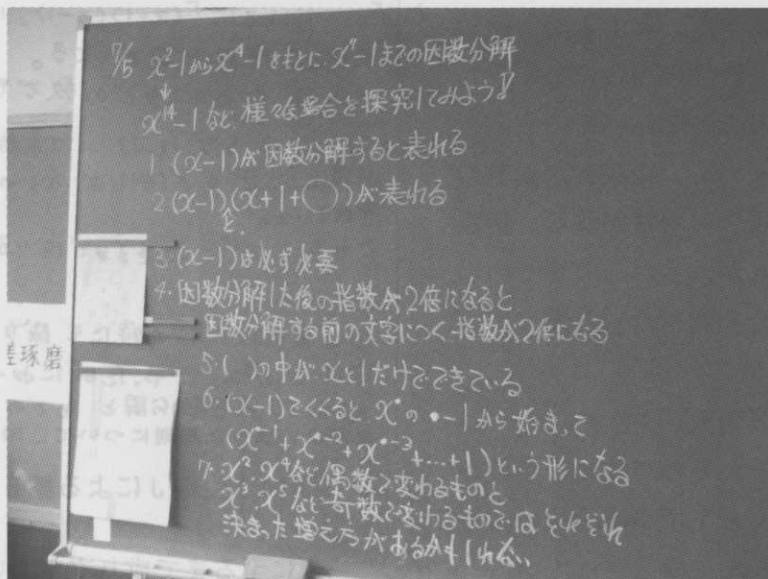 7/5 x²-1からx⁴-1をもとに、xⁿ-1までの因数分解
↓
x¹⁴-1など、様々な場合を探究してみよう!!
1 (x-1)が因数分解すると表れる
2 (x-1)と、(x+1+○)が表れる
3. (x-1)は必ず必要
4. 因数分解した後の指数が2倍になると
因数分解する前の文字につく指数が2倍になる
5. ( )の中がxと1だけでできている
6. (x-1)でくくるとx^●の●-1から始まって
(x^●-1+x^●-2+x^●-3+…+1)という形になる
7. x²、x⁴など偶数で変わるものと
x³、x⁵など奇数で変わるものではそれぞれ
決まった増え方があるかもしれない
琢磨